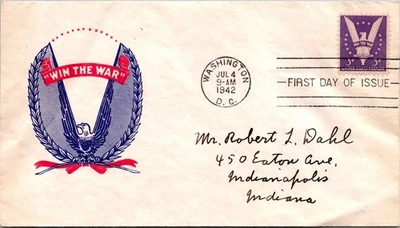 "WIN THE WAR"
WASHINGTON
JUL 4
9-AM
1942
D.C.
FIRST DAY OF ISSUE
WIN THE WAR
3¢ 3¢
Mr. Robert L. Dahl
450 Eaton Ave,
Indianapolis
Indiana